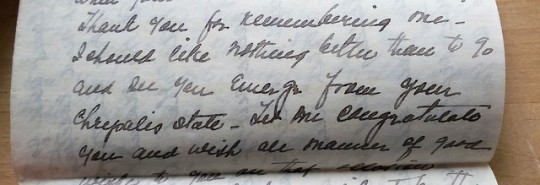 Thank you for remembering me -
I should like nothing better than to go
and see you emerge from your
chrysalis state - Let me congratulate
you and wish all manner of good
wishes to you on that occasion